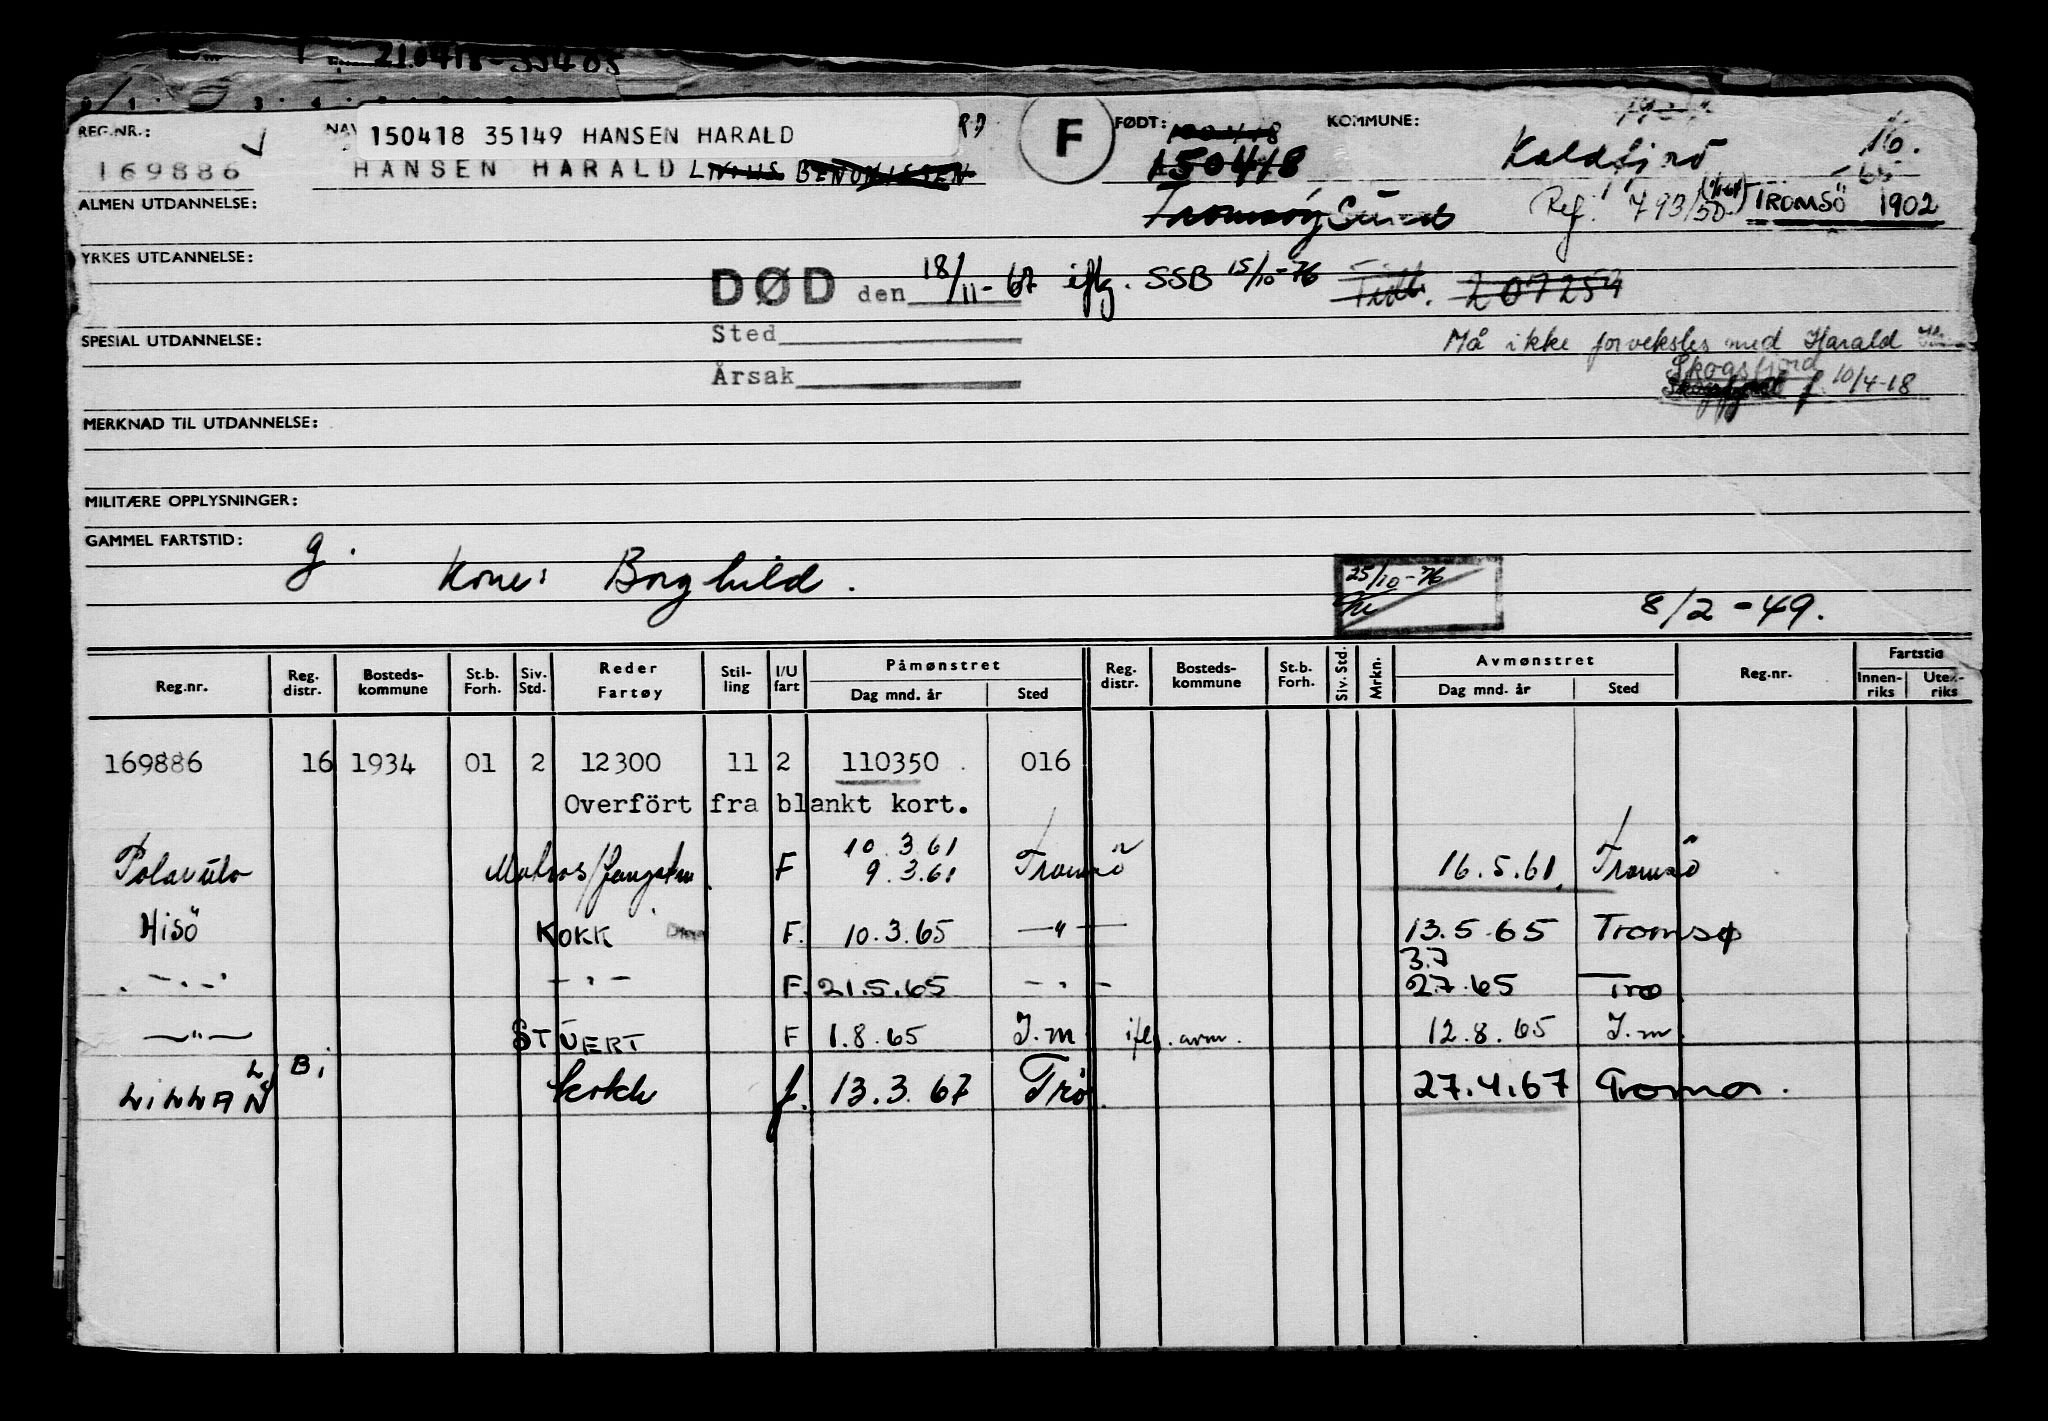 210418-35405
REG.NR.:
150418 35149 HANSEN HARALD
F
FØDT: 150418
KOMMUNE: Kaldfjord 16.
169886
HANSEN HARALD LINIUS BENONISSEN
ALMEN UTDANNELSE:
Tromsøysund
Ref. 793/50 TROMSÖ 1902
YRKES UTDANNELSE:
DØD den 18/11-67 iflg. SSB 15/10-76 Tidl. 207254
SPESIAL UTDANNELSE:
Sted
Må ikke forveksles med Harald
Årsak
Skogsfjord
f. 10/4-18
MERKNAD TIL UTDANNELSE:
MILITÆRE OPPLYSNINGER:
GAMMEL FARTSTID: g.
Kone: Borghild.
25/10-76
8/2-49.
Reg.nr. Reg. distr. Bosteds-kommune St.b. Forh. Siv. Std. Reder Fartøy Stil-ling I/U fart Påmønstret Dag mnd. år Sted Reg. distr. Bosteds-kommune St.b. Forh. Siv. Std. Mrkn. Avmønstret Dag mnd. år Sted Reg.nr. Fartstid Innen-riks Uten-riks
169886 16 1934 01 2 12300 11 2 110350 016
Overfört fra blankt kort.
10.3.61
Polarulv Matros/fangstm. F 9.3.61 Tromsö 16.5.61. Tromsö
Hisö KOKK F. 10.3.65 —"— 13.5.65 Tromsø
3.7
—"— —"— F. 21.5.65 —"— 27.65 Trø
—"— STUERT F 1.8.65 J.m iflg. avm. 12.8.65 J.m.
kokk f. 13.3.67 Trö. 27.4.67 Tromsø.